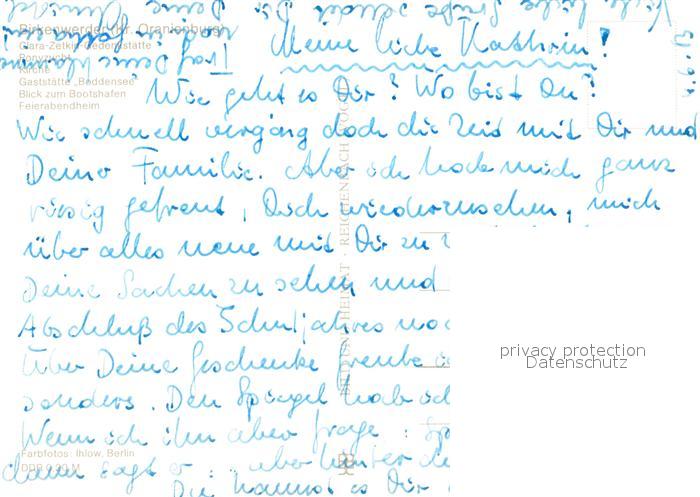 Birkenwerder (Kr. Oranienburg)
Clara-Zetkin-Gedenkstätte
Ponyzucht
Kirche
Gaststätte „Boddensee"
Blick zum Bootshafen
Feierabendheim
Meine liebe Kathrin!
Wie geht es Dir? Wo bist Du?
Wie schnell vergang doch die Zeit mit Dir und
Deiner Familie. Aber ich habe mich ganz
riesig gefreut, Dich wiederzusehen, mich
über alles neue mit Dir zu
Deine Sachen zu sehen und
Abschluß des Schuljahres noc
Über Deine Geschenke freute ic
sonders. Den Spiegel hab ich
Wenn ich ihn aber frage: Sp
dann sagt er: aber hinter de
Du kannst es Dir
BILD UND HEIMAT · REICHENBACH (VOGTL)
Farbfotos: Ihlow, Berlin
DDR 0,20 M
privacy protection
Datenschutz